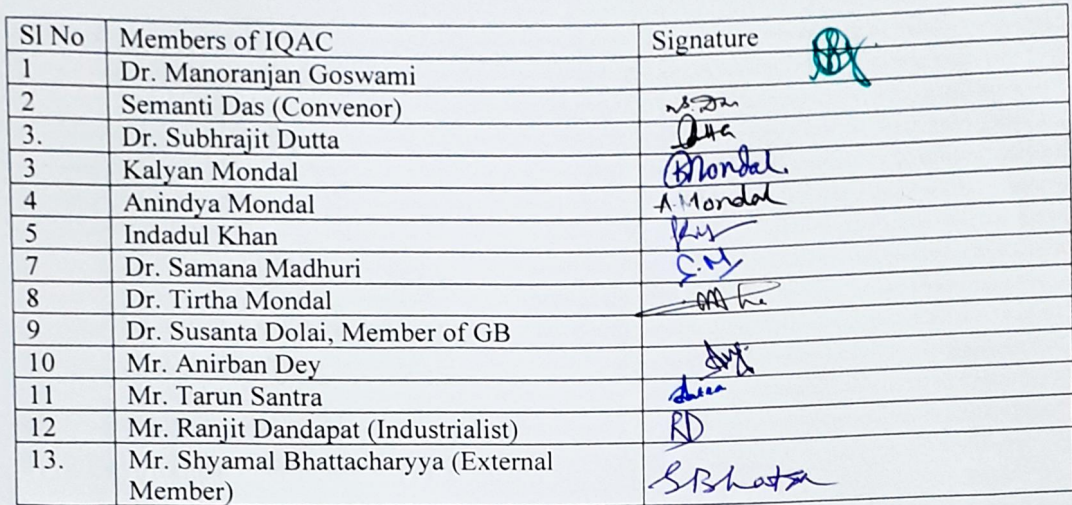 Sl No Members of IQAC Signature
1 Dr. Manoranjan Goswami
2 Semanti Das (Convenor) S. Das
3. Dr. Subhrajit Dutta Dutta
3 Kalyan Mondal Mondal
4 Anindya Mondal A. Mondal
5 Indadul Khan
7 Dr. Samana Madhuri S.M
8 Dr. Tirtha Mondal
9 Dr. Susanta Dolai, Member of GB
10 Mr. Anirban Dey
11 Mr. Tarun Santra
12 Mr. Ranjit Dandapat (Industrialist) RD
13. Mr. Shyamal Bhattacharyya (External
Member)